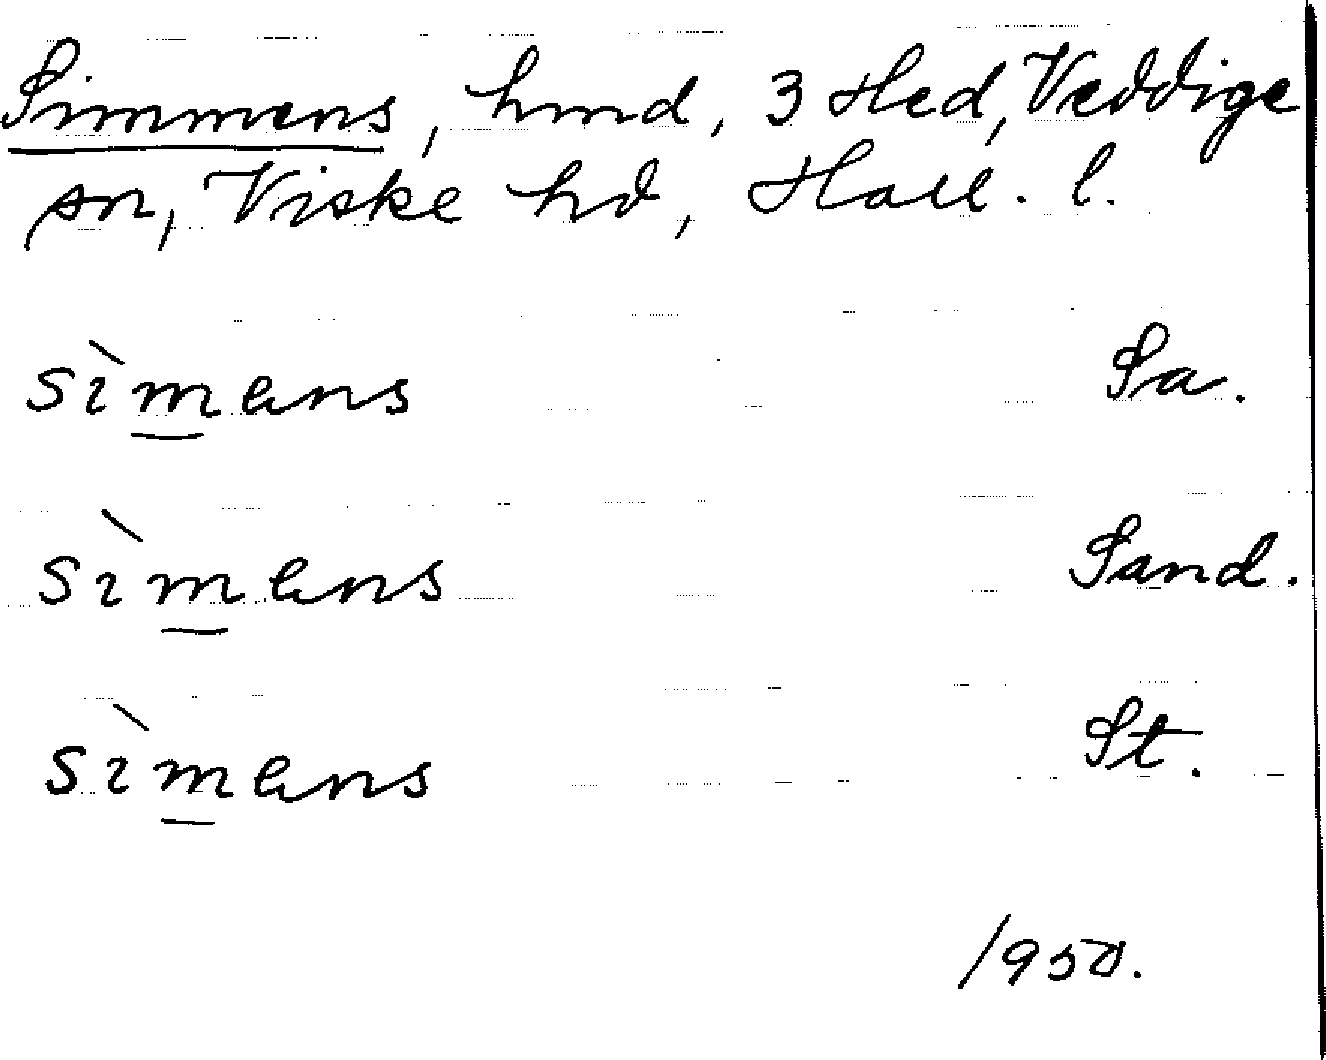 Simmens, hmd, 3 Hed, Veddige
sn, Viske hd, Hall. l.
sìmens Sa.
sìmens Sand.
sìmens St.
1950.